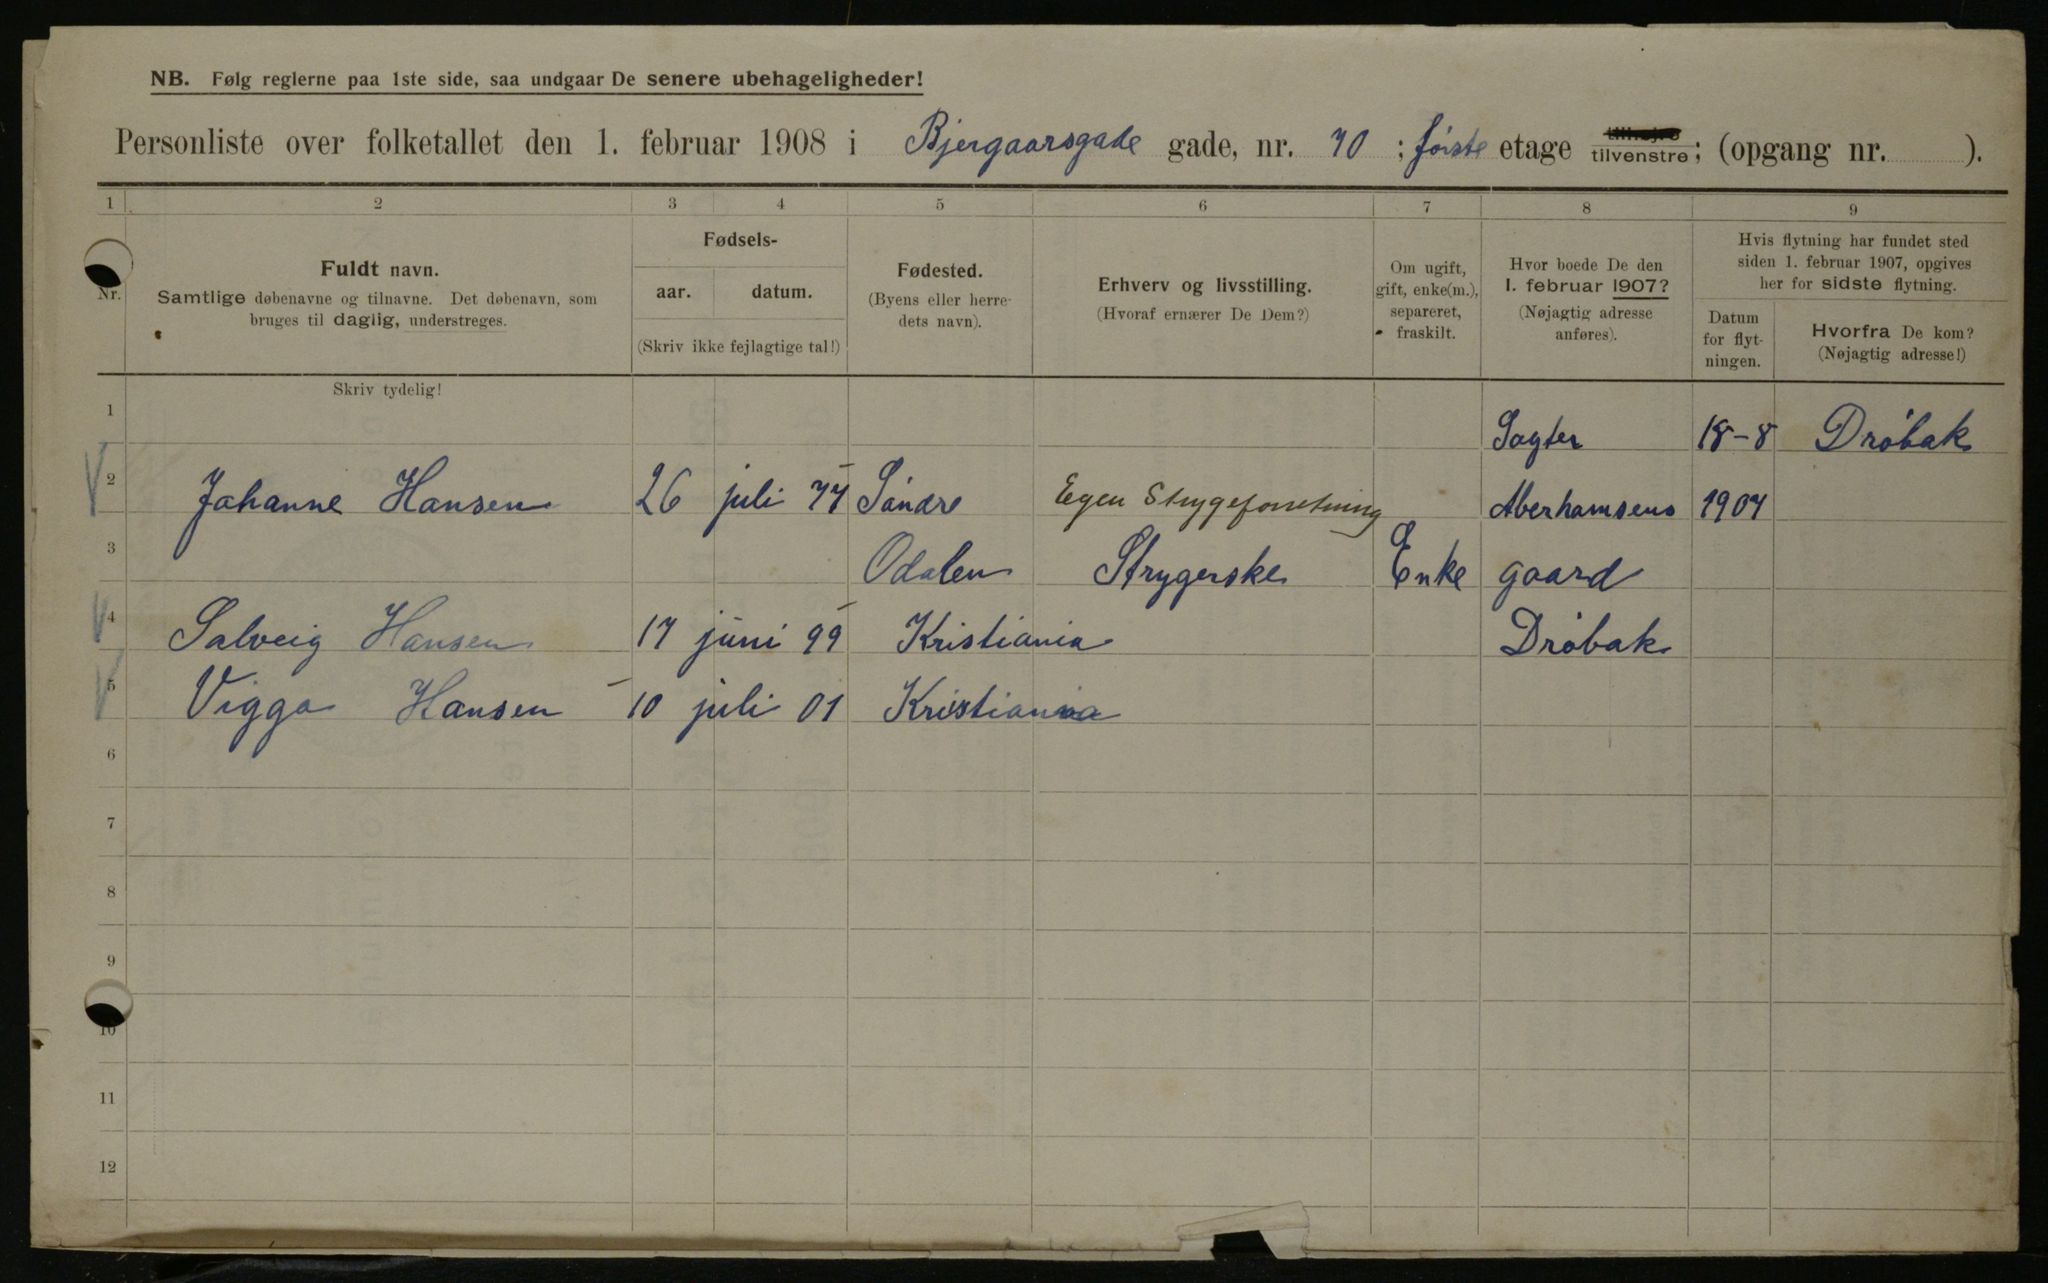 NB. Følg reglerne paa 1ste side, saa undgaar De senere ubehageligheder!
Personliste over folketallet den 1. februar 1908 i Bjergaarsgade gade, nr. 70 ; første etage tilhøjre tilvenstre; (opgang nr. ).
1 2 3 4 5 6 7 8 9
Nr.
Fuldt navn.
Samtlige døbenavne og tilnavne. Det døbenavn, som
bruges til daglig, understreges.
Fødsels-
aar. datum.
(Skriv ikke fejlagtige tal!)
Fødested.
(Byens eller herre-
dets navn).
Erhverv og livsstilling.
(Hvoraf ernærer De Dem?)
Om ugift,
gift, enke(m.),
separeret,
fraskilt.
Hvor boede De den
1. februar 1907?
(Nøjagtig adresse
anføres).
Hvis flytning har fundet sted
siden 1. februar 1907, opgives
her for sidste flytning.
Datum
for flyt-
ningen.
Hvorfra De kom?
(Nøjagtig adresse!)
Skriv tydelig!
1 Sagter 18-8 Drøbak
2 Johanne Hansen 26 juli 77 Søndre Egen Strygeforretning Aberhamsens 1907
3 Odalen Strygerske Enke gaard
4 Salveig Hansen 17 juni 99 Kristiania Drøbak
5 Viggo Hansen 10 juli 01 Kristiania
6
7
8
9
10
11
12